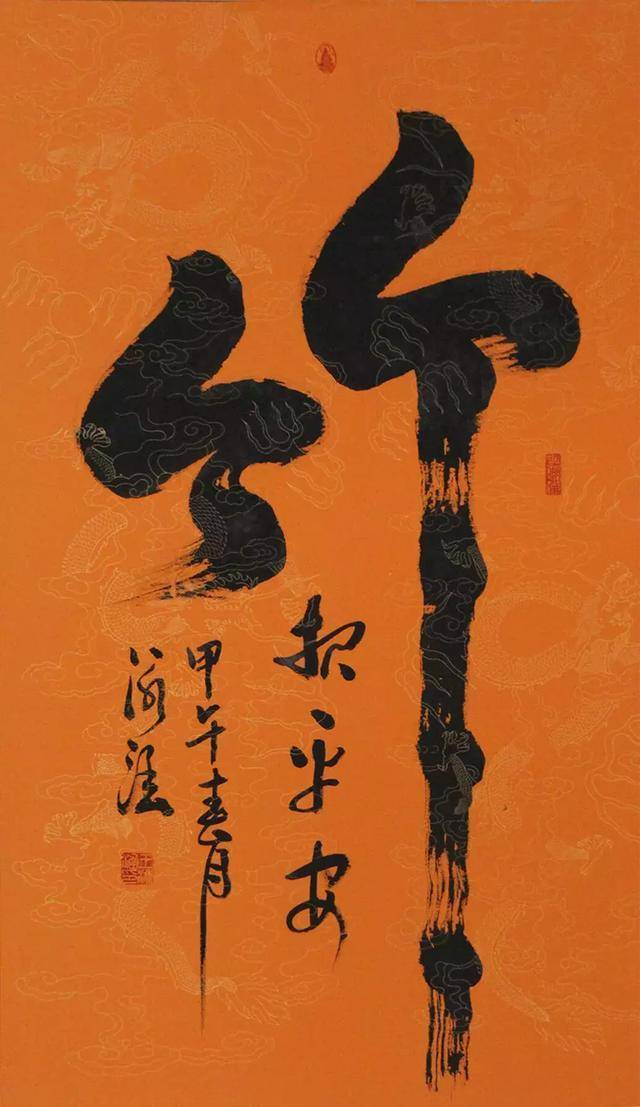 竹
报平安
甲午春月